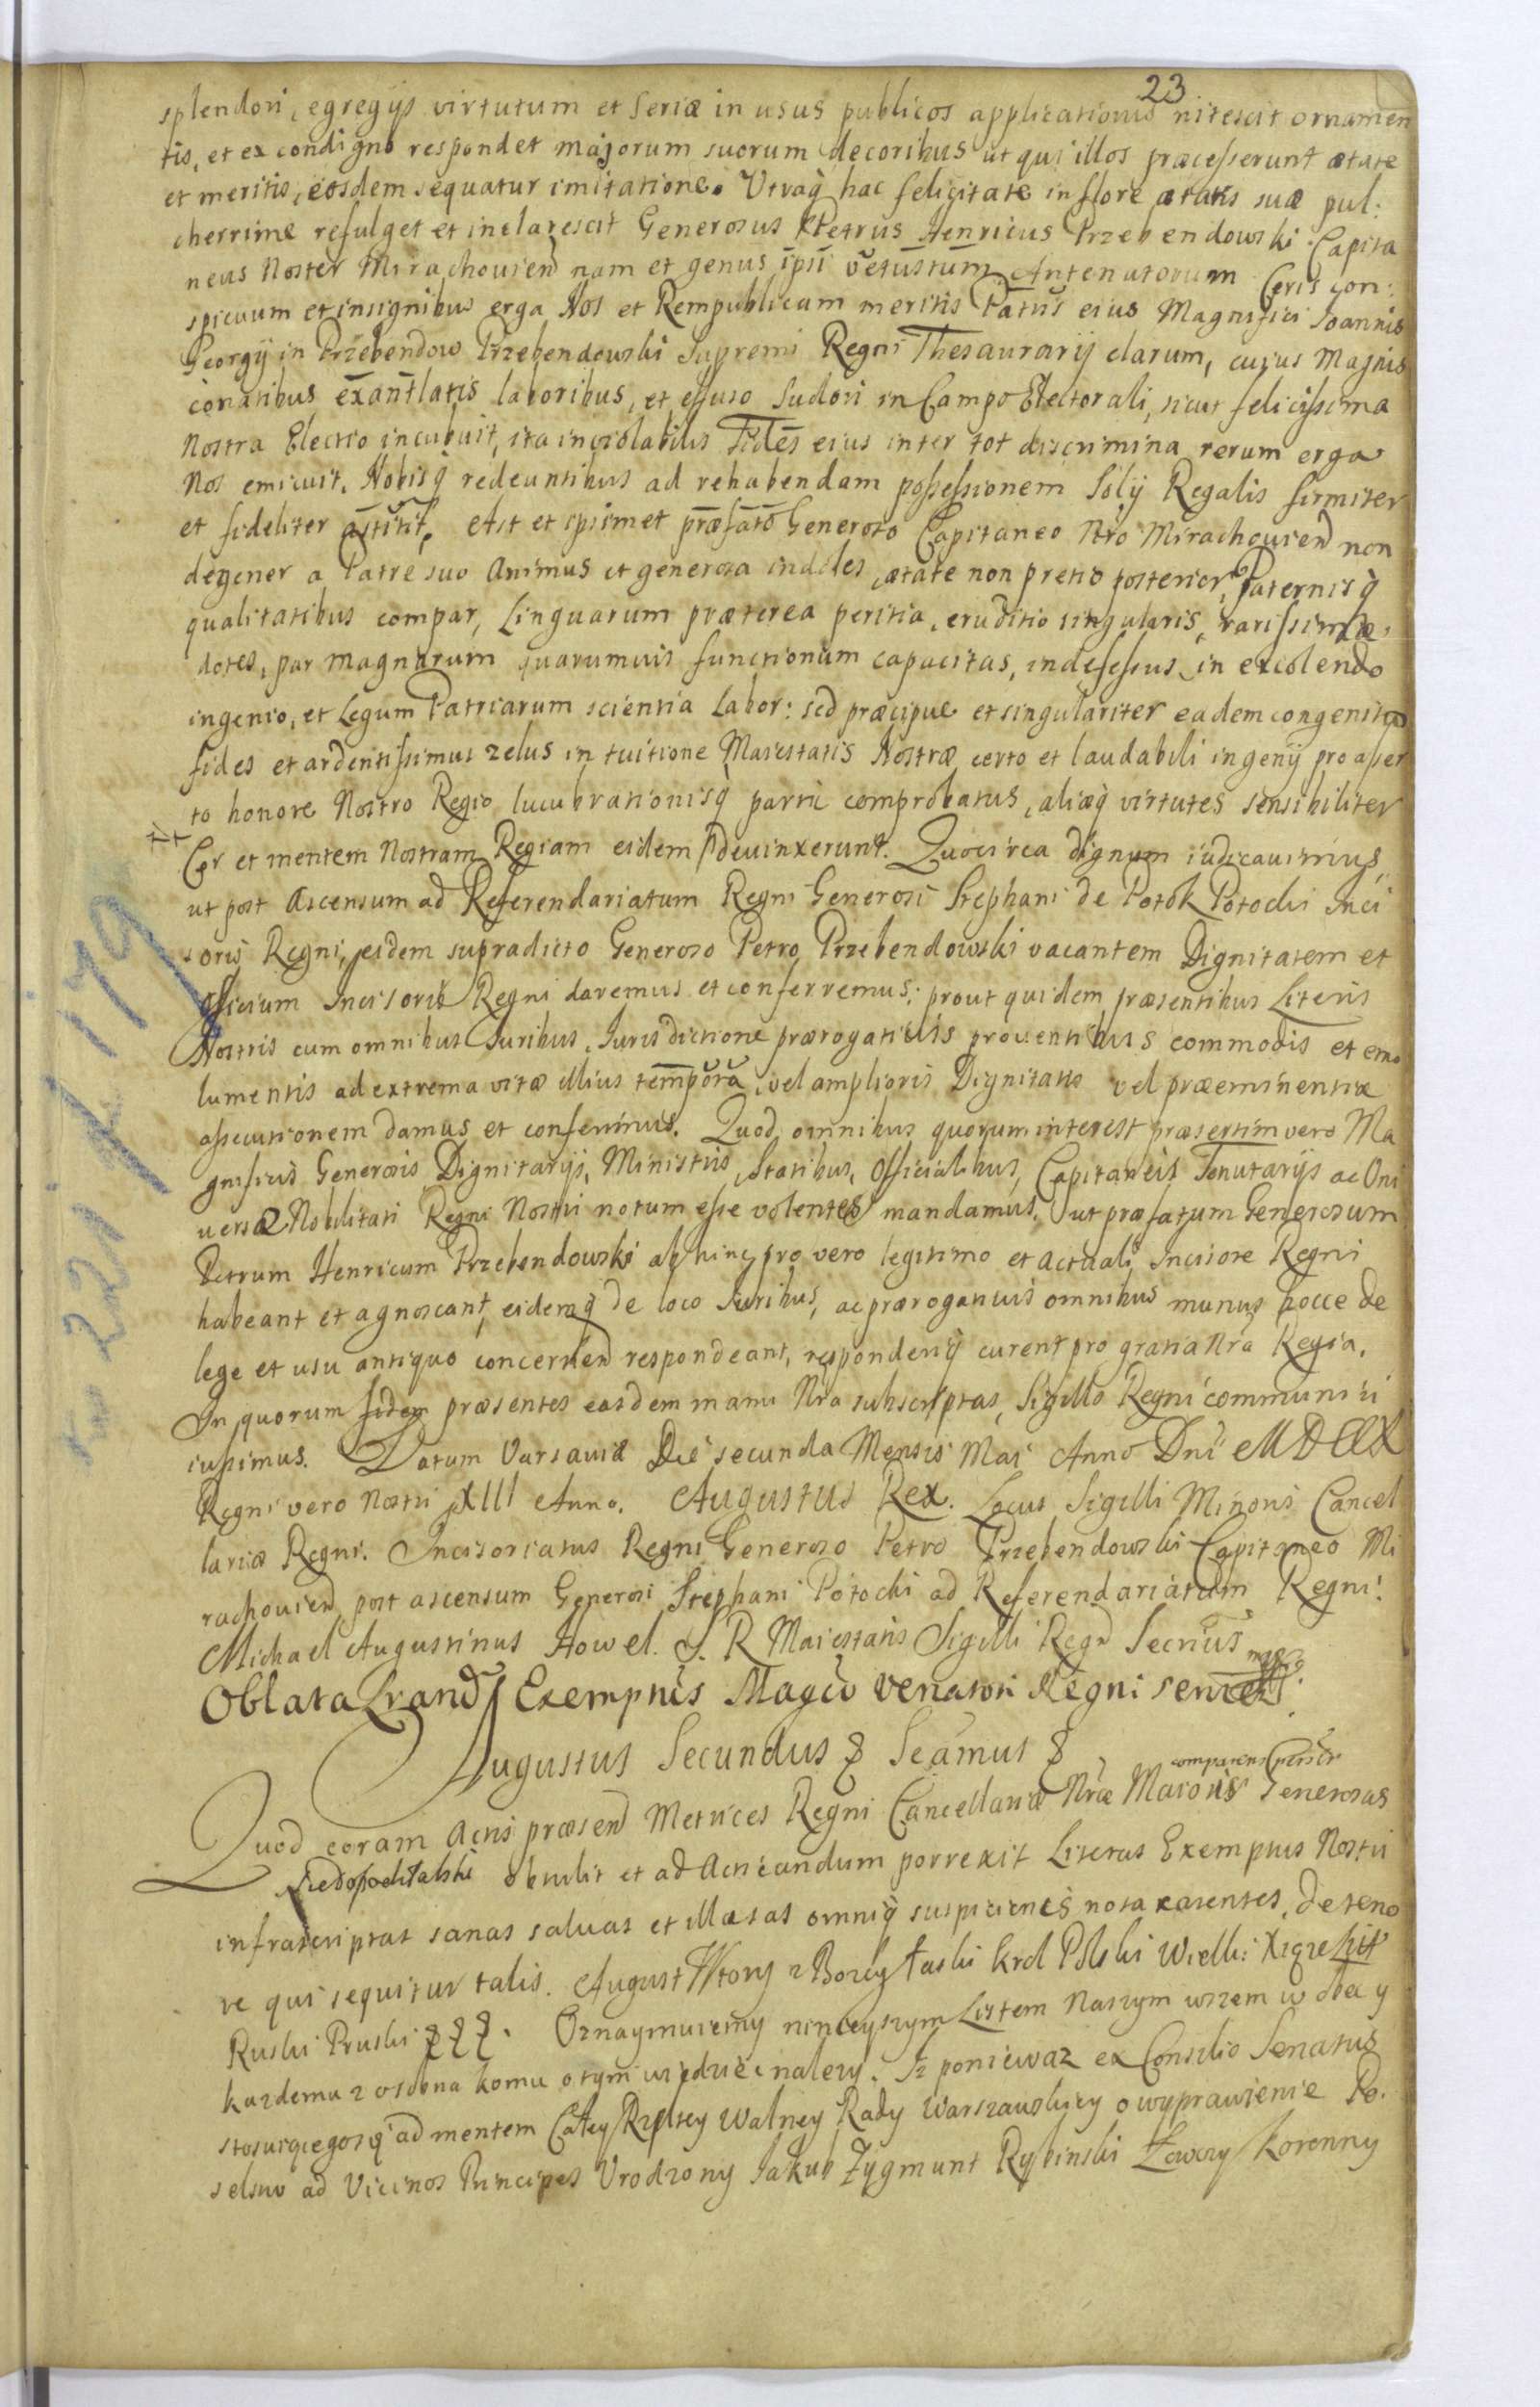 23
splendori, egregijs virtutum et seriæ in usus publicos applicationis nitescit ornamen
tis, et ex condigno respondet majorum suorum decoribus ut qui illos præcesserunt ætate
et meritis, eosdem sequatur imitatione. Utraq hac felicitate in flore ætatis suæ pul:
cherrime refulget et inclarescit Generosus Petrus Henricus Przebendowski Capita
neus Noster Mirachouien nam et genus ipsi vetustum Antenatorum Ceris con:
spicuum et insignibus erga Nos et Rempublicam meritis Patris eius Magnifici Joannis
Georgij in Przebendow Przebendowski Supremi Regni Thesaurarij clarum, cujus Magnis
conatibus exantlatis laboribus, et effuso Sudori in Campo Electorali, sicut felicissima
Nostra Electio incubuit, ita inviolabilis Fides eius inter tot discrimina rerum erga
Nos emicuit. Nobisq redeuntibus ad rehabendam possessionem Solij Regalis firmiter
et fideliter astitit. Ast et ipsimet præfato Generoso Capitaneo Nro Mirachouien non
degener a Patre suo Animus et generosa indoles, ætate non pretio posterior, Paternisq
qualitatibus compar, Linguarum præterea peritia, eruditio singularis, rarissimæ
dotes, par magnarum quarumuis functionum capacitas, indefessus in excolendo
ingenio, et Legum Patriarum scientia Labor: sed præcipue et singulariter eadem congenita
fides et ardentissimus zelus in tuitione Maiestatis Nostræ certo et laudabili ingenij pro asser
to honore Nostro Regio lucubrationisq partu comprobatus, aliæq virtutes sensibiliter
Cor et mentem Nostram Regiam eidem devinxerunt. Quocirca dignum iudicauimus,
ut post Ascensum ad Referendariatum Regni Generosi Stephani de Potok Potocki Inci
soris Regni, eidem supradicto Generoso Petro Przebendowski vacantem Dignitatem et
Officium Incisoris Regni daremus et conferremus; prout quidem præsentibus Literis
Nostris cum omnibus Juribus, Jurisdictione prærogatiuis prouentibus commodis et emo
lumentis ad extrema vitæ illius tempora, vel amplioris Dignitatis vel præeminentiæ
assecutionem damus et conferimus. Quod omnibus quorum interest præsertim vero Ma
gnificis Generosis Dignitarijs, Ministris, Statibus, Officialibus, Capitaneis Tenutarijs ac Uni
uersæ Nobilitati Regni Nostri notum esse volentes mandamus, ut præfatum Generosum
Petrum Henricum Przebendowski ab hinc pro vero legitimo et actuali Incisore Regni
habeant et agnoscant, eidemq de loco Juribus, ac prærogatiuis omnibus munus hocce de
lege et usu antiquo concernen respondeant, responderiq curent pro gratia Nra Regia.
In quorum fidem præsentes easdem manu Nra subscriptas, Sigillo Regni communiri
iussimus. Datum Varsaviæ Die secunda Mensis Mai Anno Dni MDCCX
Regni vero Nostri XIII Anno. Augustus Rex. Locus Sigilli Minoris Cancel
lariæ Regni. Incisoriatus Regni Generoso Petro Przebendowski Capitaneo Mi
rachouien post ascensum Generosi Stephani Potocki ad Referendariatum Regni.
Michael Augustinus Howel. S. R Maiestatis Sigilli Regn Secrius mpp
Oblata Lrand Exemptus Magco Venatori Regni
Augustus Secundus Seamus
comparens Perstr
Quod coram Actis præsend Metrices Regni Cancellariæ Nræ Maioris Generosus
obtulit et ad Acticandum porrexit Literas Exemptus Nostri
infrascriptas sanas saluas et illæsas omniq suspicionis nota carentes, de teno
re qui sequitur talis. August Wtory z Bozey łaski krol Polski Wielki Xiąze Lit
Ruski Pruski. Oznaymuiemy ninieyszym Listem Naszym wszem w obec y
kazdemu z osobna komu o tym wiedziec nalezy. Iz poniewaz ex Consilio Senatus
stosuiącegosię ad mentem Całey Rzpltey Walney Rady Warszawskiey o wyprawienie Po.
selstw ad Vicinos Principes Urodzony Jakub Zygmunt Rybinski Łowczy Koronny